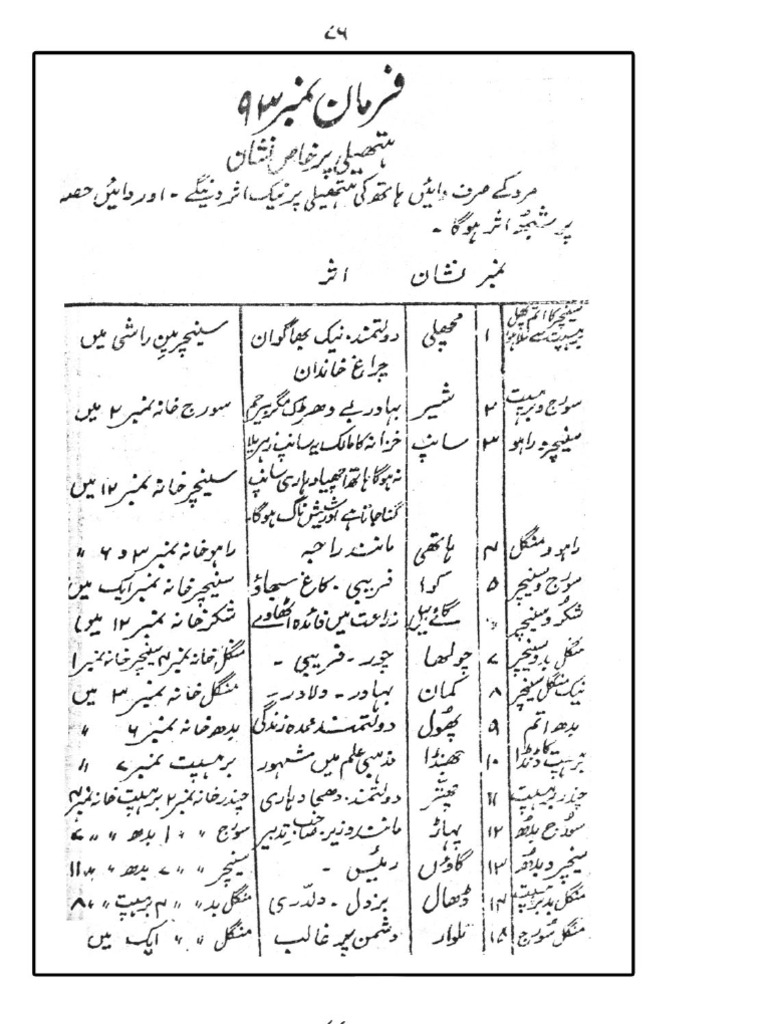 ۷۶
فرمان نمبر ۹۳
ہتھیلی پر خاص نشان
مرد کے صرف دائیں ہاتھ کی ہتھیلی پر نیک اثر دینگے - اور دائیں حصہ
پر شبھ اثر ہوگا -
نمبر نشان اثر
سنیچر کا اتم پھل برہسپت سے ملا ہوا ۱ مچھلی دولتمند. نیک بھاگوان چراغ خاندان سنیچر مین راشی میں
سورج و برہسپت ۲ شیر بہادر بے دھڑک مگر بیرحم سورج خانہ نمبر ۲ میں
سنیچر و راہو ۳ سانپ خزانہ کا مالک یہ سانپ زہریلا
نہ ہوگا. ہاتھ اچھیا دہاری سانپ سنیچر خانہ نمبر ۱۲ میں
گنا جاتا ہے اور شیش ناگ ہوگا.
راہو و منگل ۴ ہاتھی مانند راجہ راہو خانہ نمبر ۳ و ۶ 〃
سورج و سنیچر ۵ کوا فریبی. کاغ سبھاؤ سنیچر خانہ نمبر ایک میں
شکر و سنیچر ۶ گائے بیل زراعت میں فائدہ اٹھاوے شکر خانہ نمبر ۱۲ میں
منگل بد و سنیچر ۷ چولھا چور - فریبی - منگل خانہ نمبر ۴ سنیچر خانہ نمبر ۱
نیک منگل سنیچر ۸ کمان بہادر - دلاور - منگل خانہ نمبر ۳ میں
بدھ اتم ۹ پھول دولتمند عمدہ زندگی بدھ خانہ نمبر ۶ 〃
برہسپت کا ڈنڈا ۱۰ جھنڈا مذہبی علم میں مشہور برہسپت نمبر ۷ 〃
چندر برہسپت ۱۱ چھتر دولتمند. دھجا دہاری چندر خانہ نمبر ۲ برہسپت خانہ نمبر ۴
سورج بدھ ۱۲ پہاڑ مانند وزیر. صاحب تدبیر سورج 〃 〃 ۱ بدھ 〃 〃 ۷
سنیچر و بدھ ۱۳ گاؤں رئیس - سنیچر 〃 〃 ۷ بدھ 〃 〃 ۱۱
منگل بد برہسپت ۱۴ ڈھال بزدل - دلدری منگل بد 〃 〃 ۴ برہسپت 〃 〃 ۸
منگل سورج ۱۵ تلوار دشمن پر غالب منگل 〃 〃 ایک میں